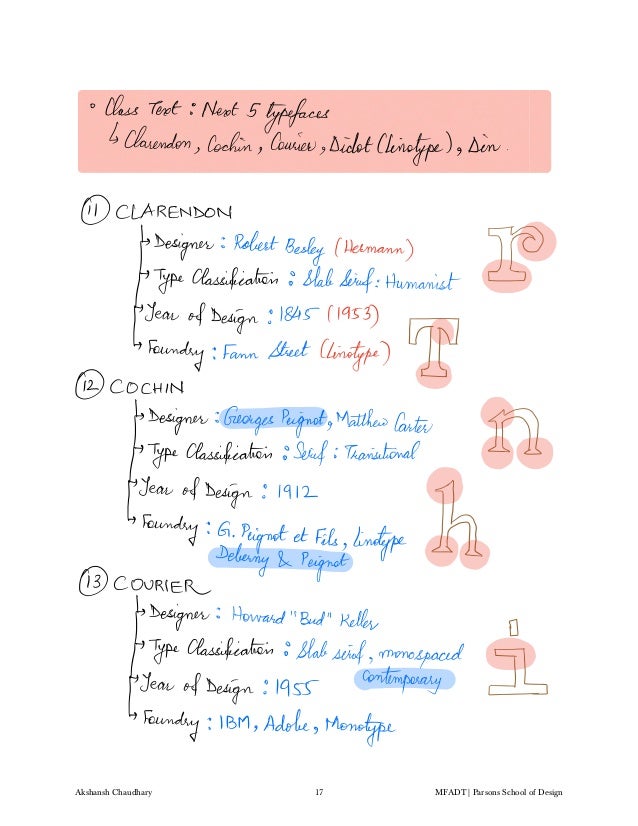 ° Class Text : Next 5 typefaces
↳ Clarendon, Cochin, Courier, Didot (Linotype), Din.
11 CLARENDON
↳ Designer : Robert Besley (Hermann)
↳ Type Classification : Slab Serif : Humanist
↳ Year of Design : 1845 (1953)
↳ Foundry : Fann Street (Linotype)
r
T
12 COCHIN
↳ Designer : Georges Peignot, Matthew Carter
↳ Type Classification : Serif : Transitional
↳ Year of Design : 1912
↳ Foundry : G. Peignot et Fils, Linotype
Deberny & Peignot
n
h
13 COURIER
↳ Designer : Howard "Bud" Keller
↳ Type Classification : Slab serif, monospaced
Contemporary
↳ Year of Design : 1955
↳ Foundry : IBM, Adobe, Monotype
i
Akshansh Chaudhary 17 MFADT | Parsons School of Design